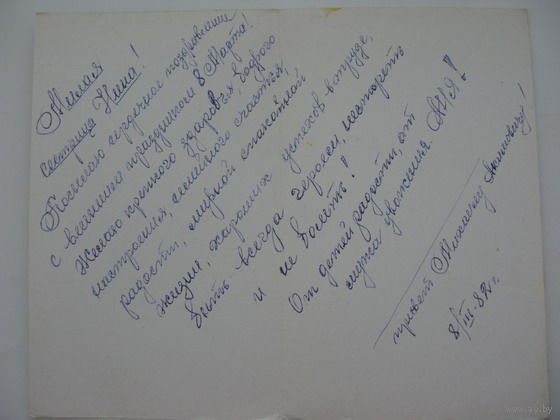 Милая
сестрица Нина!
Посылаю сердечное поздравление
с весенним праздником 8 Марта!
Желаю крепкого здоровья, бодрого
настроения, семейного счастья,
радости, мирной спокойной
жизни, хороших успехов в труде,
быть всегда героем, настореть
и не болеть!
От детей радости, от
мужа уважения. АИЯ!
привет Михаилу Афанасьевичу!
8/III-82г.
www.ay.by